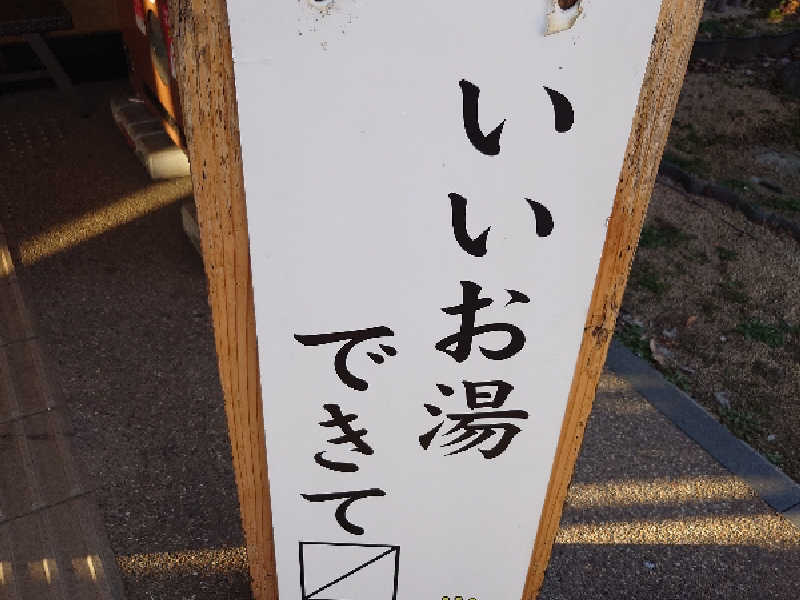 いいお湯
できて〼